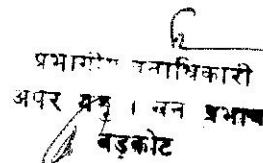 प्रभागीय वनाधिकारी
अपर यमुना वन प्रभाग
बड़कोट